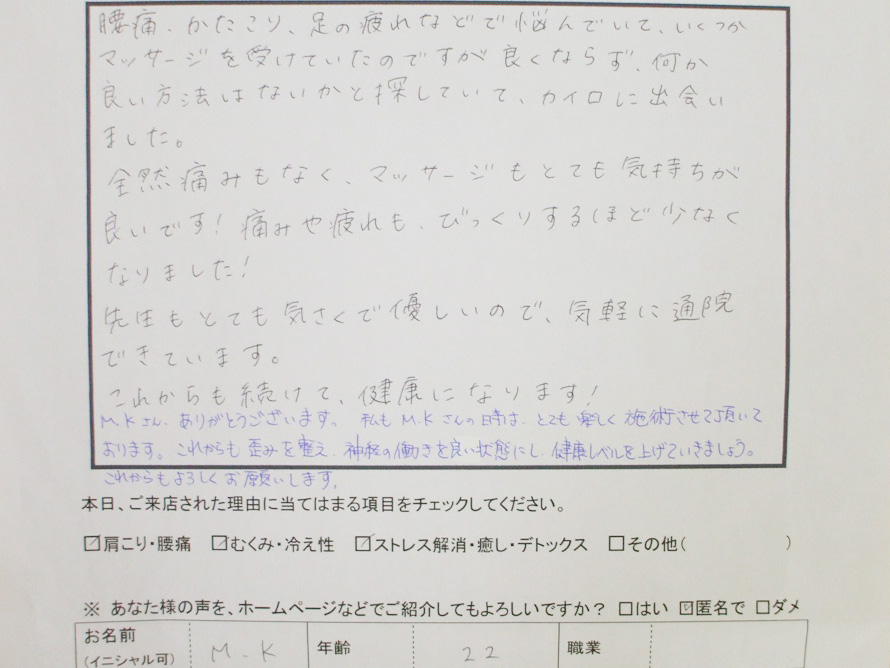 腰痛、かたこり、足の疲れなどで悩んでいて、いくつか
マッサージを受けていたのですが良くならず、何か
良い方法はないかと探していて、カイロに出会い
ました。
全然痛みもなく、マッサージもとても気持ちが
良いです！痛みや疲れも、びっくりするほど少なく
なりました！
先生もとても気さくで優しいので、気軽に通院
できています。
これからも続けて、健康になります！
M.Kさん、ありがとうございます。私もM.Kさんの時は、とても楽しく施術させて頂いて
おります。これからも歪みを整え、神経の働きを良い状態にし、健康レベルを上げていきましょう。
これからもよろしくお願いします。
本日、ご来店された理由に当てはまる項目をチェックしてください。
☑肩こり・腰痛 ☑むくみ・冷え性 ☑ストレス解消・癒し・デトックス □その他( )
※ あなた様の声を、ホームページなどでご紹介してもよろしいですか？ □はい ☑匿名で □ダメ
お名前 (イニシャル可) M.K 年齢 22 職業